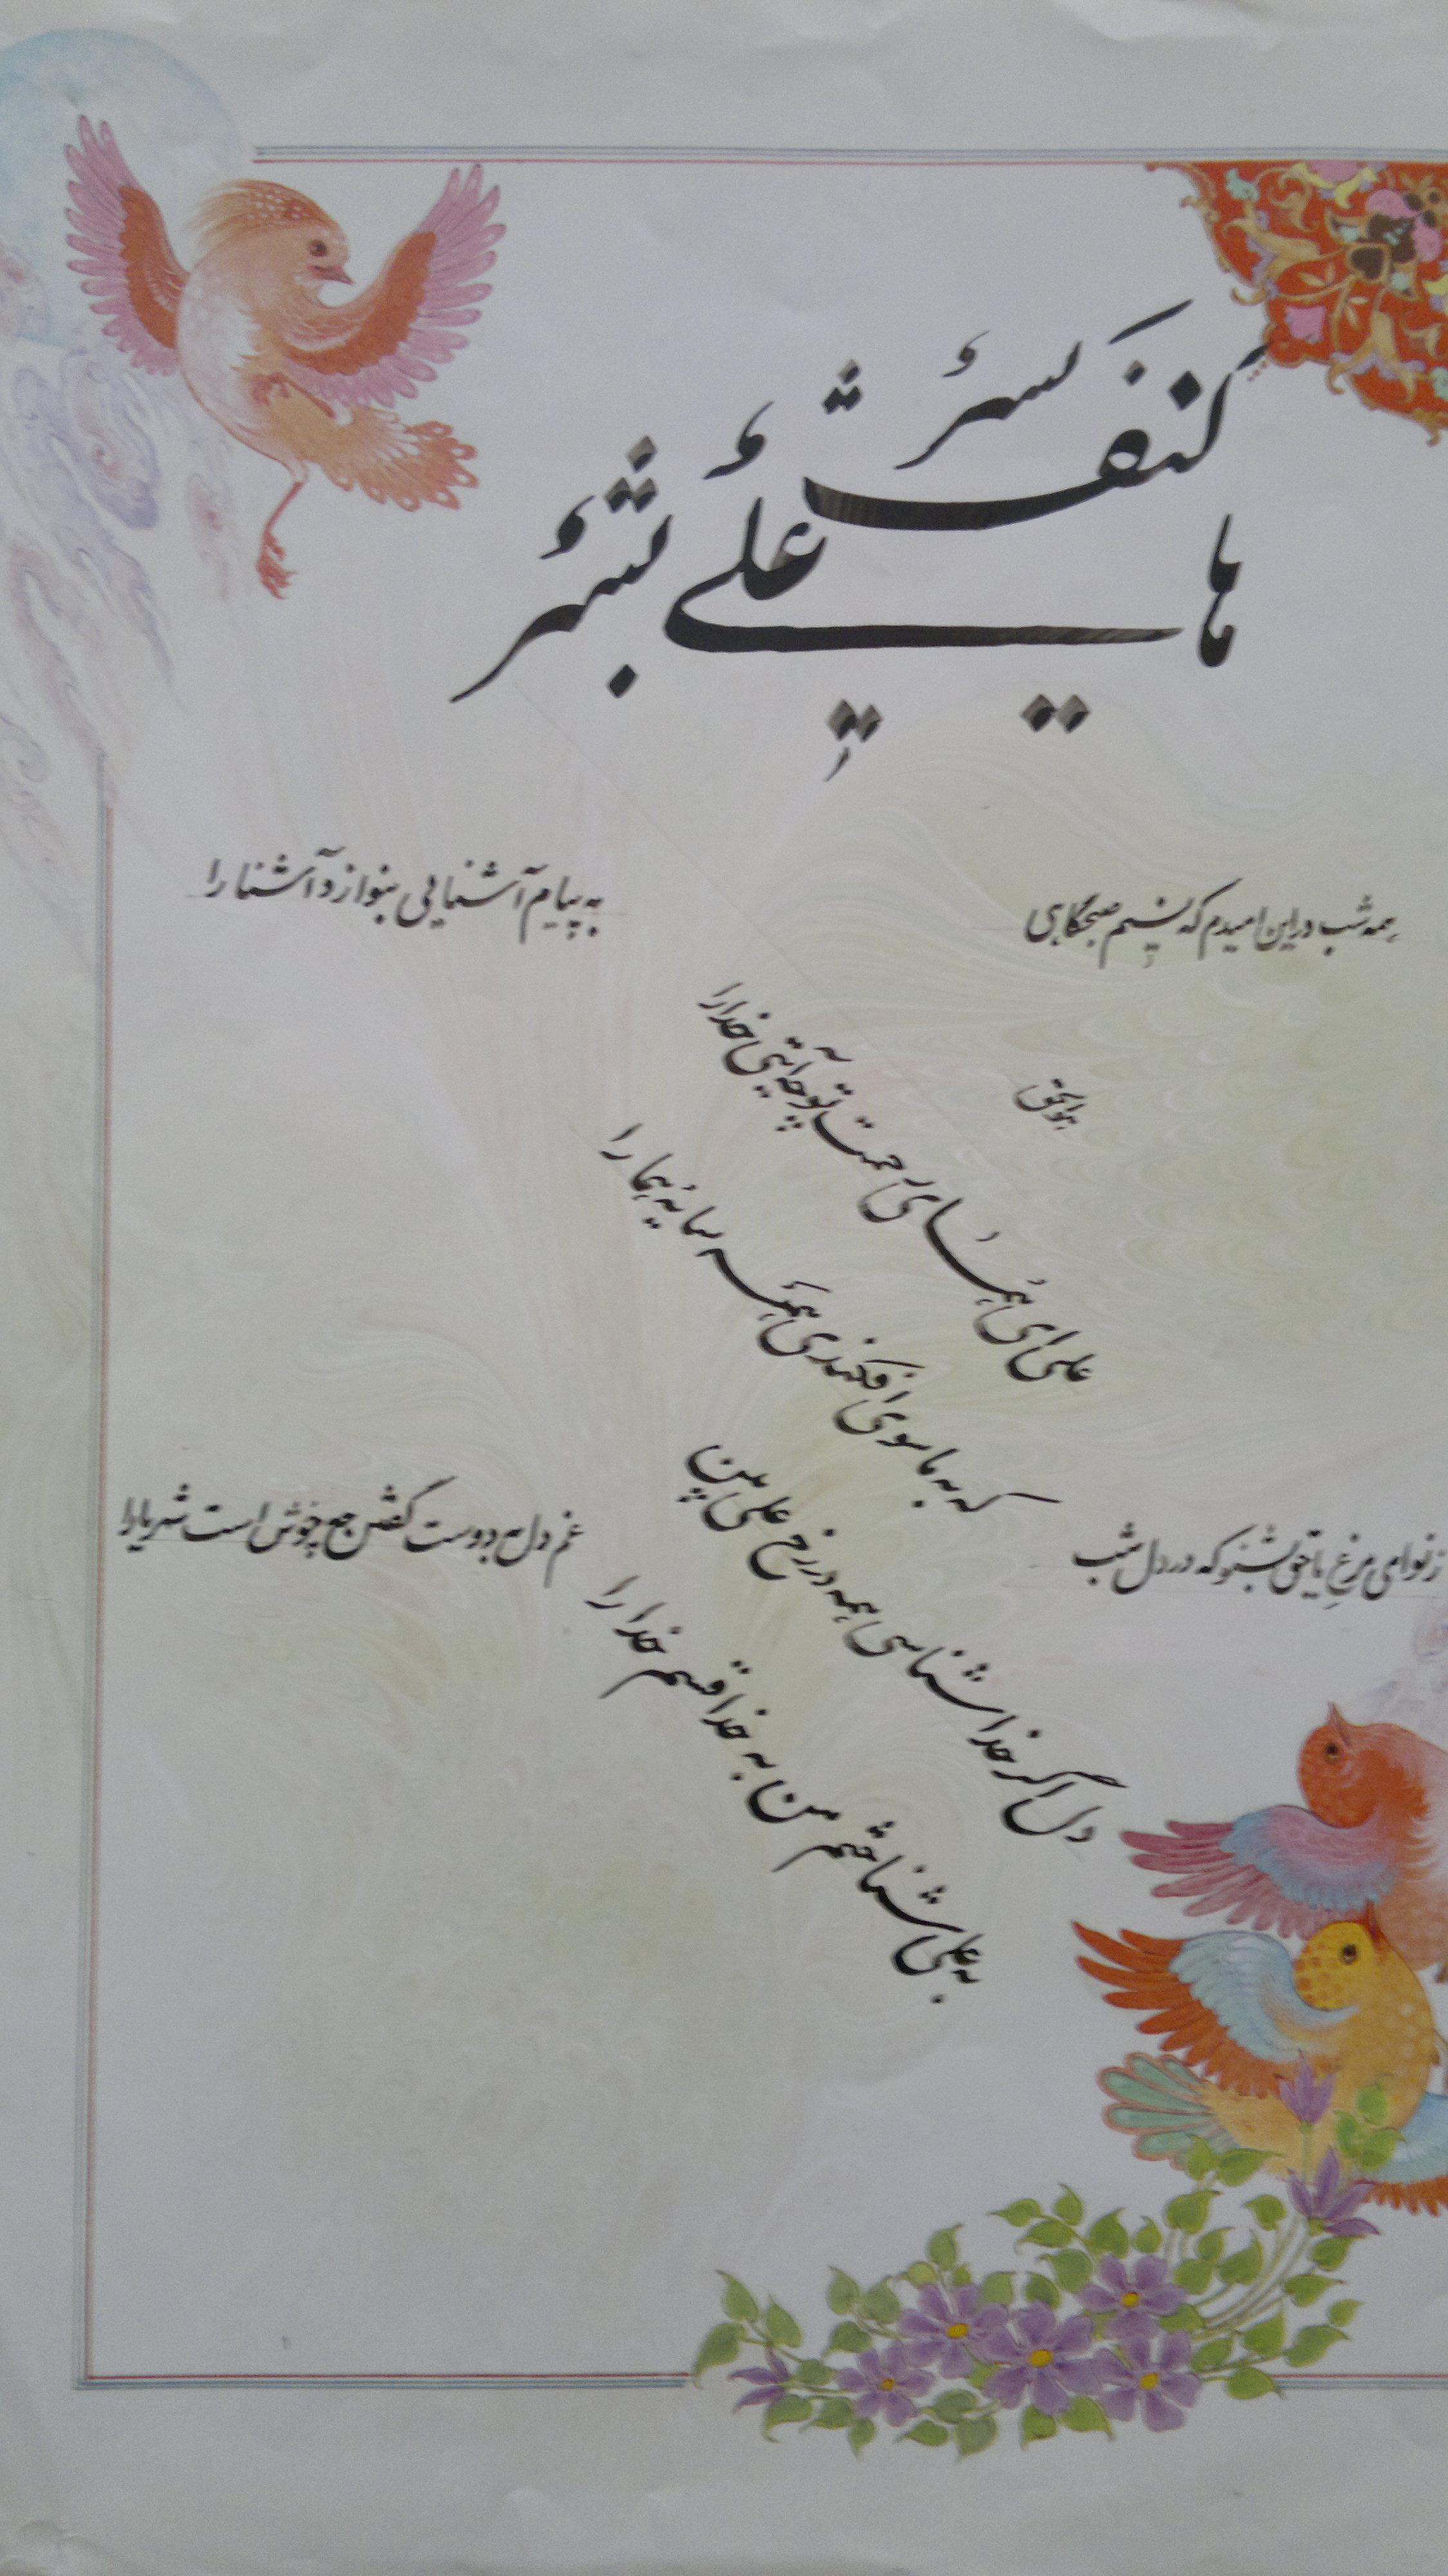 ها علیٌ بشرٌ کیف بشرٌ
همه شب در این امیدم که نسیم صبحگاهی
به پیام آشنایی بنوازد آشنا را
هوالحق
علی ای همای رحمت تو چه آیتی خدا را
که به ماسوی افکندی همه سایهٔ هما را
دل اگر خداشناسی همه در رخ علی بین
به علی شناختم من به خدا قسم خدا را
ز نوای مرغ یا حق بشنو که در دل شب
غم دل به دوست گفتن چه خوش است شهریارا